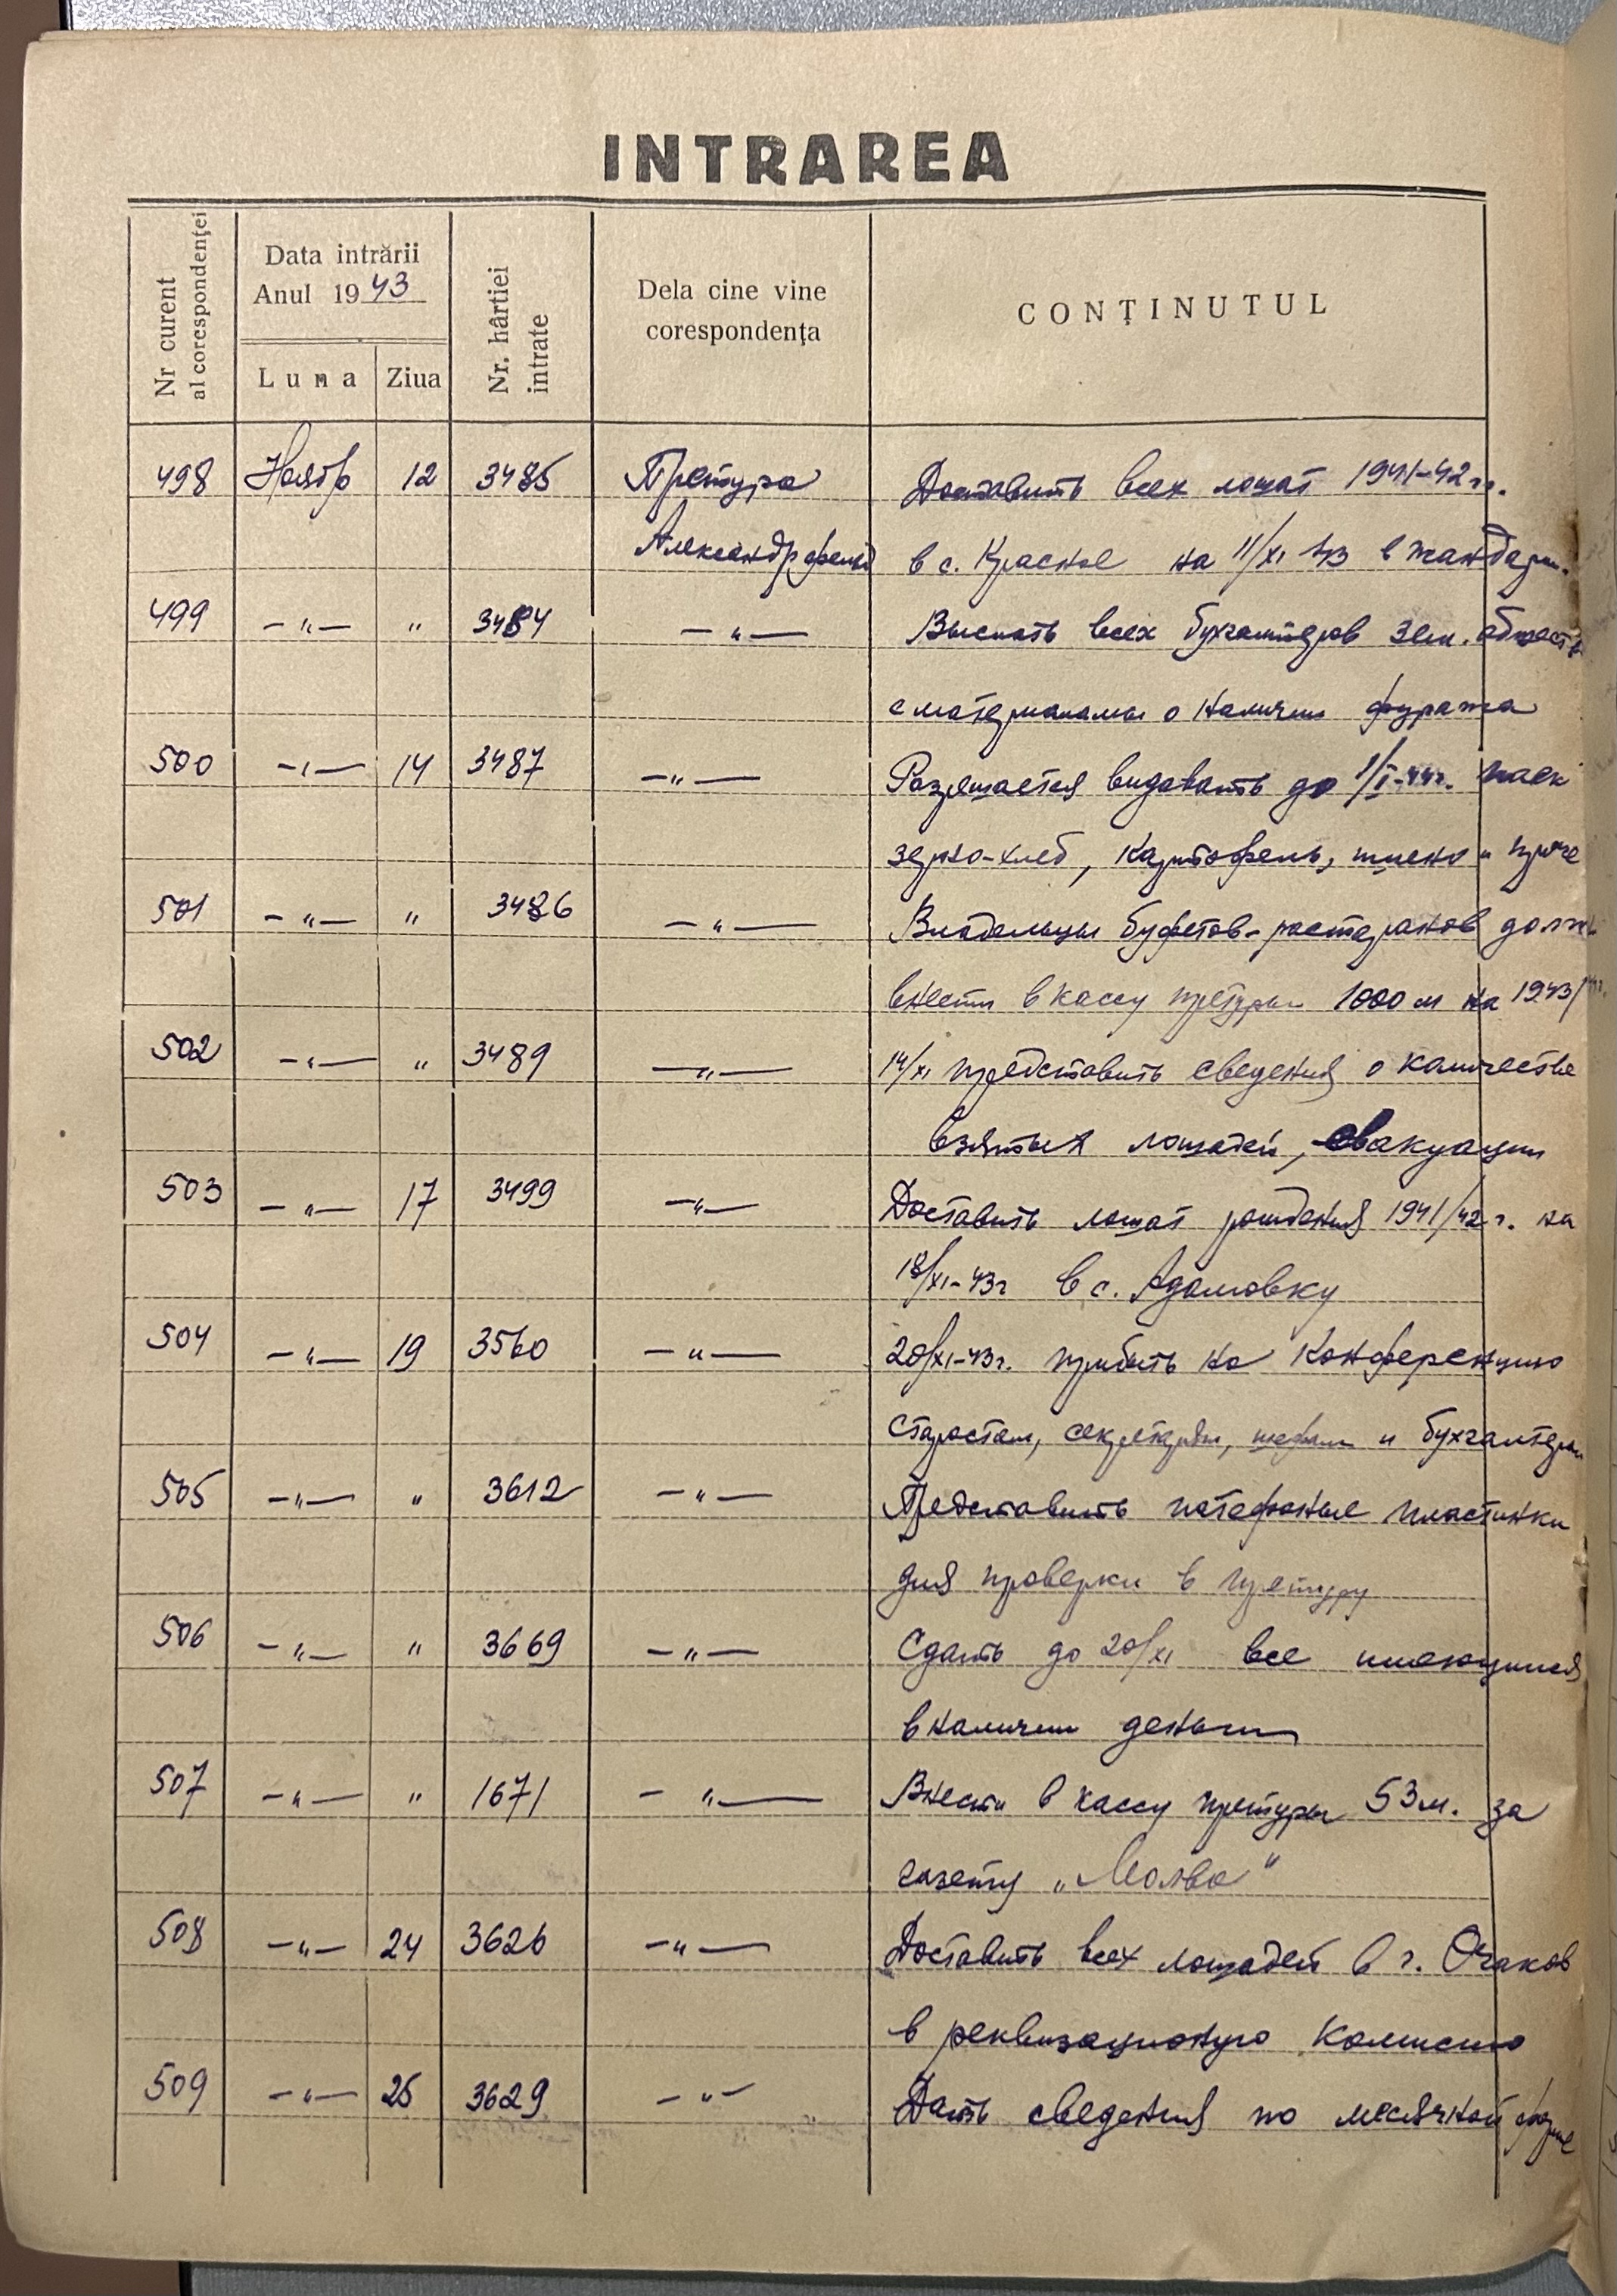 INTRAREA
Nr curent al corespondenței
Data intrării
Anul 1943
Luna Ziua
Nr. hârtiei intrate
Dela cine vine corespondența
CONȚINUTUL
498 Ноябр 12 3485 Претура Доставить всех лошат 1941-42 гг.
Александрфельд в с. Красное на 11/XI 43 в жандарм.
499 -"- " 3484 -"- Выслать всех бухгалтеров зем. обществ
с материалами о наличии фуража
500 -"- 14 3487 -"- Разрешается видавать до 1/I-44г. паек
зерно-хлеб, картофель, пшено и проче
501 -"- " 3486 -"- Владельцы буфетов-рестаранов должн
внести в кассу претуры 1000 м на 1943/44г.
502 -"- " 3489 -"- 14/XI представить сведения о количестве
взятых лошадей, евакуации
503 -"- 17 3499 -"- Доставить лошат рождения 1941/42 г. на
18/XI-43г в с. Адамовку
504 -"- 19 3560 -"- 20/XI-43г. прибыть на Конференцию
старостам, секретарям, шефам и бухгалтерам
505 -"- " 3612 -"- Представить патефоные пластинки
для проверки в претуру
506 -"- " 3669 -"- Сдать до 20/XI все имеющиися
в наличии деньги
507 -"- " 1671 -"- Внести в кассу претуры 53 м. за
газету „Молва"
508 -"- 24 3626 -"- Доставить всех лошадей в г. Очаков
в реквизационую комисию
509 -"- 25 3629 -"- Дать сведения по месячной форме